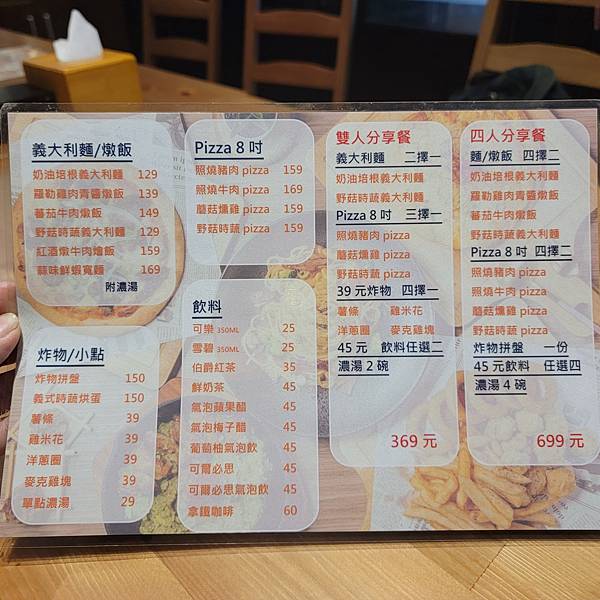 義大利麵/燉飯
奶油培根義大利麵 129
羅勒雞肉青醬燉飯 139
蕃茄牛肉燉飯 149
野菇時蔬義大利麵 129
紅酒燉牛肉燴飯 159
蒜味鮮蝦寬麵 169
附濃湯
炸物/小點
炸物拼盤 150
義式時蔬烘蛋 150
薯條 39
雞米花 39
洋蔥圈 39
麥克雞塊 39
單點濃湯 29
Pizza 8 吋
照燒豬肉 pizza 159
照燒牛肉 pizza 169
蘑菇燻雞 pizza 159
野菇時蔬 pizza 159
飲料
可樂 350ML 25
雪碧 350ML 25
伯爵紅茶 35
鮮奶茶 45
氣泡蘋果醋 45
氣泡梅子醋 45
葡萄柚氣泡飲 45
可爾必思 45
可爾必思氣泡飲 45
拿鐵咖啡 60
雙人分享餐
義大利麵 二擇一
奶油培根義大利麵
野菇時蔬義大利麵
Pizza 8 吋 三擇一
照燒豬肉 pizza
蘑菇燻雞 pizza
野菇時蔬 pizza
39 元炸物 四擇一
薯條 雞米花
洋蔥圈 麥克雞塊
45 元 飲料任選二
濃湯 2 碗
369 元
四人分享餐
麵/燉飯 四擇二
奶油培根義大利麵
羅勒雞肉青醬燉飯
蕃茄牛肉燉飯
野菇時蔬義大利麵
Pizza 8 吋 四擇二
照燒豬肉 pizza
照燒牛肉 pizza
蘑菇燻雞 pizza
野菇時蔬 pizza
炸物拼盤 一份
45 元飲料 任選四
濃湯 4 碗
699 元